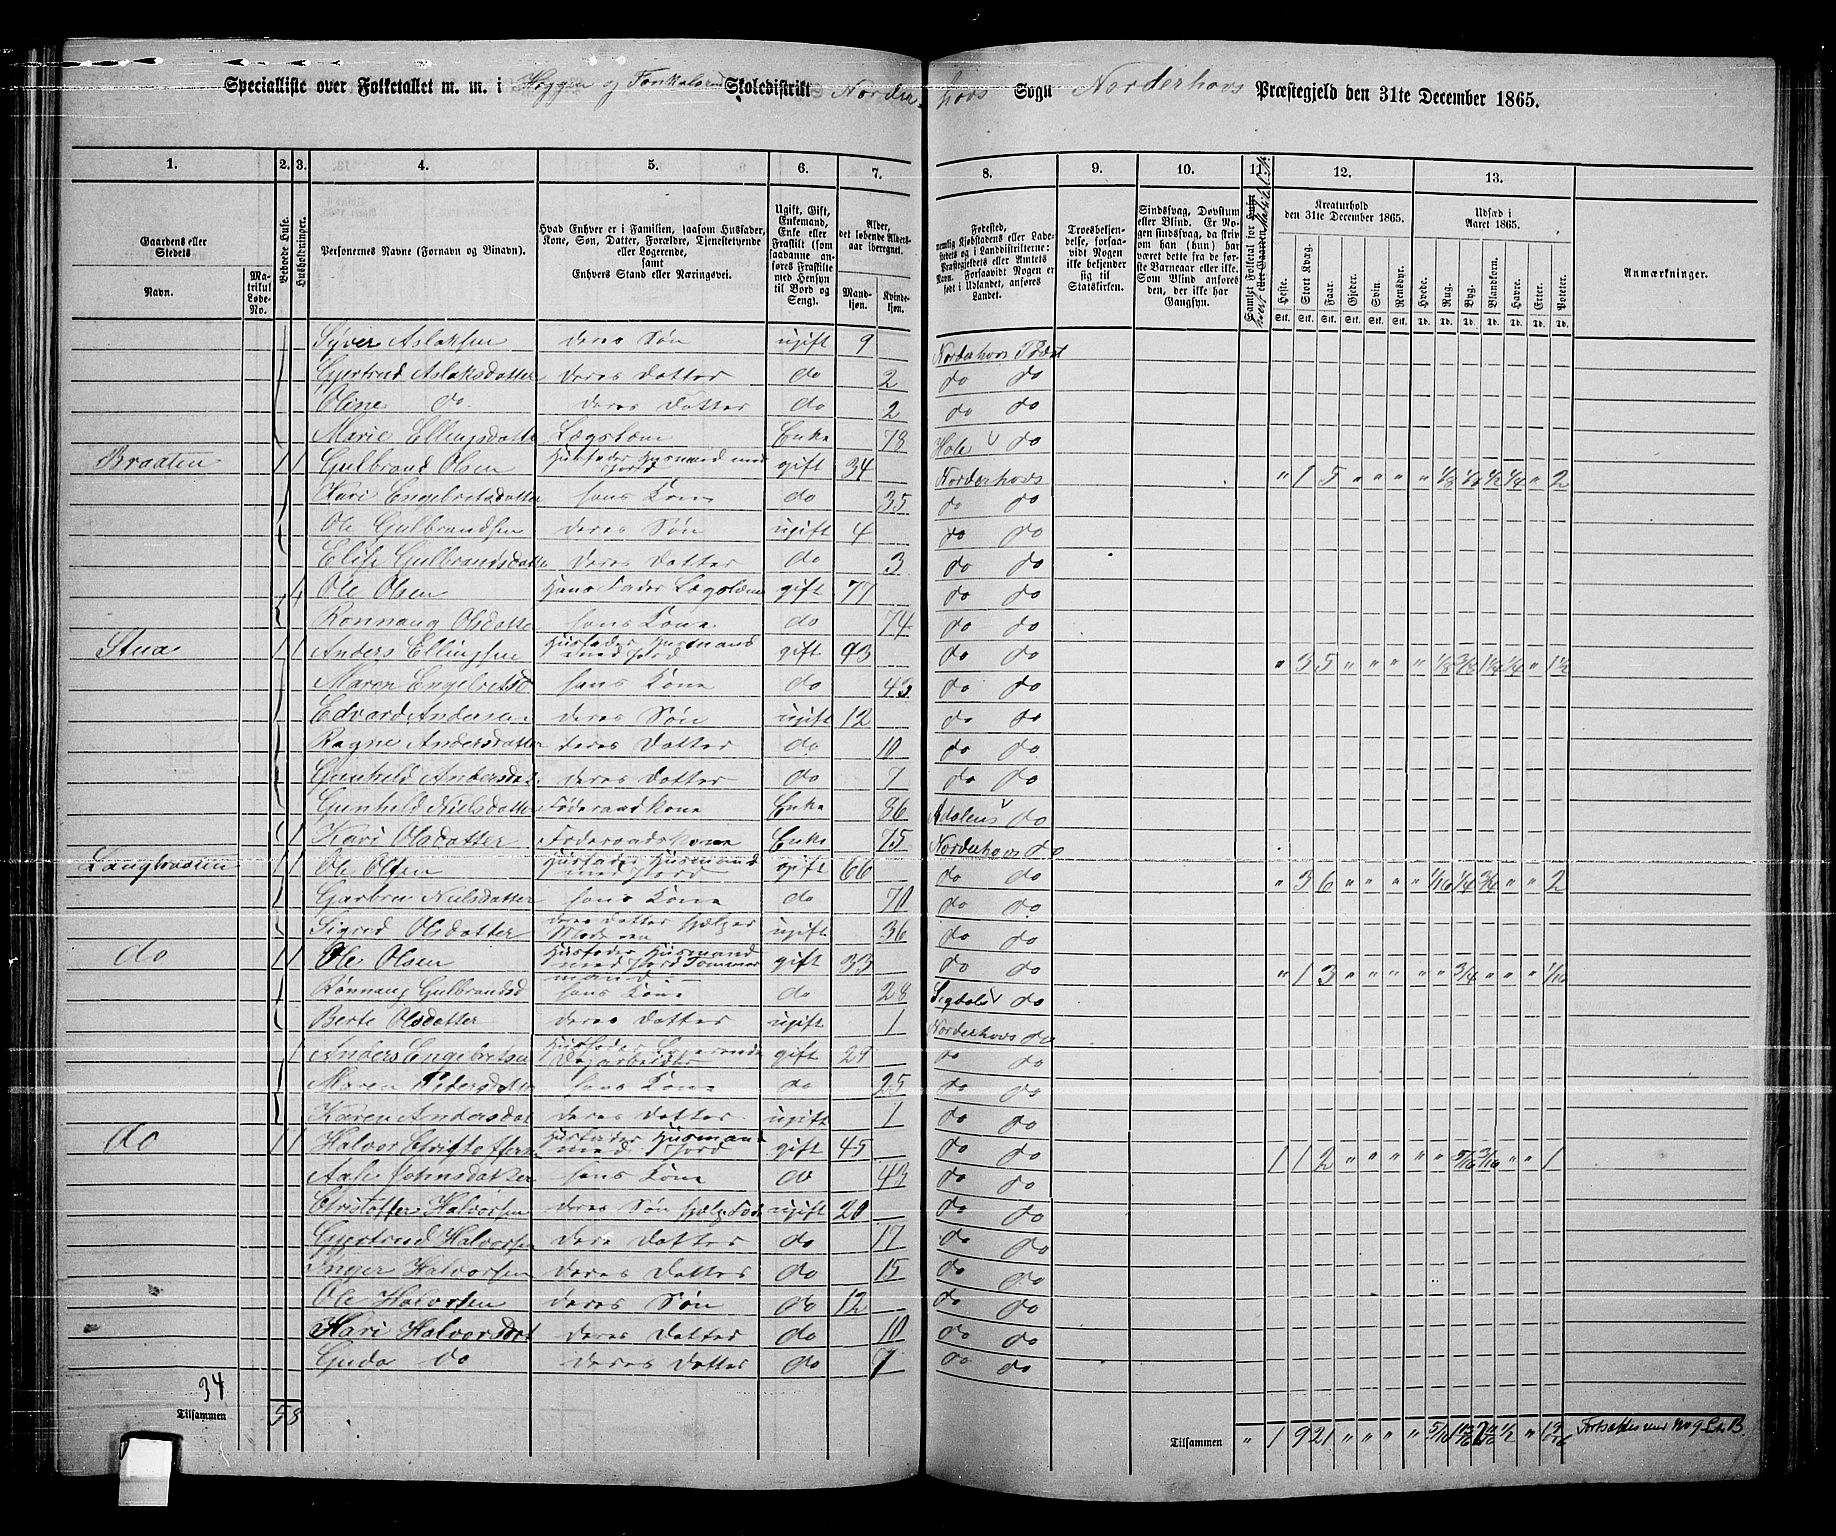 Specialliste over Folketallet m. m. i Heggen og Skoledistrikt Norder-hovs Sogn Norderhovs Præstegjeld den 31te December 1865.
1. 2. 3. 4. 5. 6. 7. 8. 9. 10. 11. 12. 13.
Gaardens eller Stedets
Navn.
Matrikul Løbe-No.
Beboede Huse.
Husholdninger.
Personernes Navne (Fornavn og Tilnavn).
Hvad Enhver er i Familien, saasom Husfader, Kone, Søn, Datter, Forældre, Tjenestetyende eller Logerende, samt Enhvers Stand eller Næringsvei.
Ugift, Gift, Enkemand, Enke eller Fraskilt (som saadanne anføres Fraskilte med Hensyn til Bord og Seng).
Alder, det løbende Aldersaar iberegnet.
Mandkjøn.
Kvindekjøn.
Fødested,
Troesbekjendelse, forsaavidt Nogen ikke bekjender sig til Statskirken.
Sindssvag, Døvstum eller Blind. Er Nogen sindssvag, da skrives om han (hun) har været det fra de første Barneaar eller ikke. Som Blind anføres den, der ikke har Gangsyn.
Kreaturhold den 31te December 1865.
Heste. Stort Kvæg. Faar. Gjeder. Svin. Rensdyr.
Udsæd i Aaret 1865.
Hvede. Rug. Byg. Blandkorn. Havre. Erter. Poteter.
Anmærkninger.
Syver Aslaksen deres Søn ugift 9 Norderhovs Præst
Gjertrud Aslaksdatter deres Datter do 2 do do
Oline do deres Datter do 2 do do
Marie Ellingsdatter Lægslem Enke 78 Hole do
Braaten 1 1 Gulbrand Olsen Husfader Husmand med Jord gift 34 Norderhovs " 1 5 " " " " 1/8 1/8 1/2 1/4 " 2
Kari Engebretsdatter hans Kone do 35 do do
Ole Gulbrandsen deres Søn ugift 4 do do
Elise Gulbrandsdatter deres Datter do 3 do do
Ole Olsen Hans Fader Lægslem gift 77 do do
Rønnaug Olsdatter hans Kone do 74 do do
Stua 1 1 Anders Ellingsen Husfader Husmand med Jord gift 43 do do " 3 5 " " " " 1/8 3/16 1 1/4 1/4 " 1 1/2
Maren Engebretsd hans Kone do 43 do do
Edvard Andersen deres Søn ugift 12 do do
Ragne Andersdatter deres Datter do 10 do do
Gunhild Andersdat deres Datter do 7 do do
Gunhild Nielsdatter Føderaadkone Enke 86 Adalens do
1 Kari Olsdatter Føderaadskone Enke 75 Norderhovs do
Langbraaten 1 1 Ole Olsen Husfader Husmand med Jord gift 66 do do " 3 6 " " " " 1/16 1/4 3/4 " " 2
Nielsdatter hans Kone do 70 do do
Sigrid Olsdatter deres Datter hjelper Moderen ugift 36 do do
do 1 1 Ole Olsen Husfader Husmand med Jord Tømmermand gift 33 do do " 1 3 " " " " " 3/4 " " " 1/16
Rønnaug Gulbrandsd hans Kone do 28 Sigdals do
Berte Olsdatter deres Datter ugift 1 Norderhovs do
1 Anders Engebretsen Husfader Logerende Dagarbeider gift 29 do do
Maren Pedersdatter hans Kone do 25 do do
Karen Andersdat deres Datter ugift 1 do do
do 1 1 Halvor Christoffers Husfader Husmand med Jord gift 45 do do 1 1 2 " " " " " 5/16 3/16 " " 1
Aase Johnsdatter hans Kone do 43 do do
Christoffer Halvorsen deres Søn ugift 20 do do
Gjertrud Halvorsen dere Datter do 17 do do
Inger Halvorsen deres Datter do 15 do do
Ole Halvorsen deres Søn do 12 do do
Kari Halvorsdat deres Datter do 10 do do
Guda do deres Datter do 7 do do
34
Tilsammen 5 8
Tilsammen " 1 9 21 " " " " 1/2 "